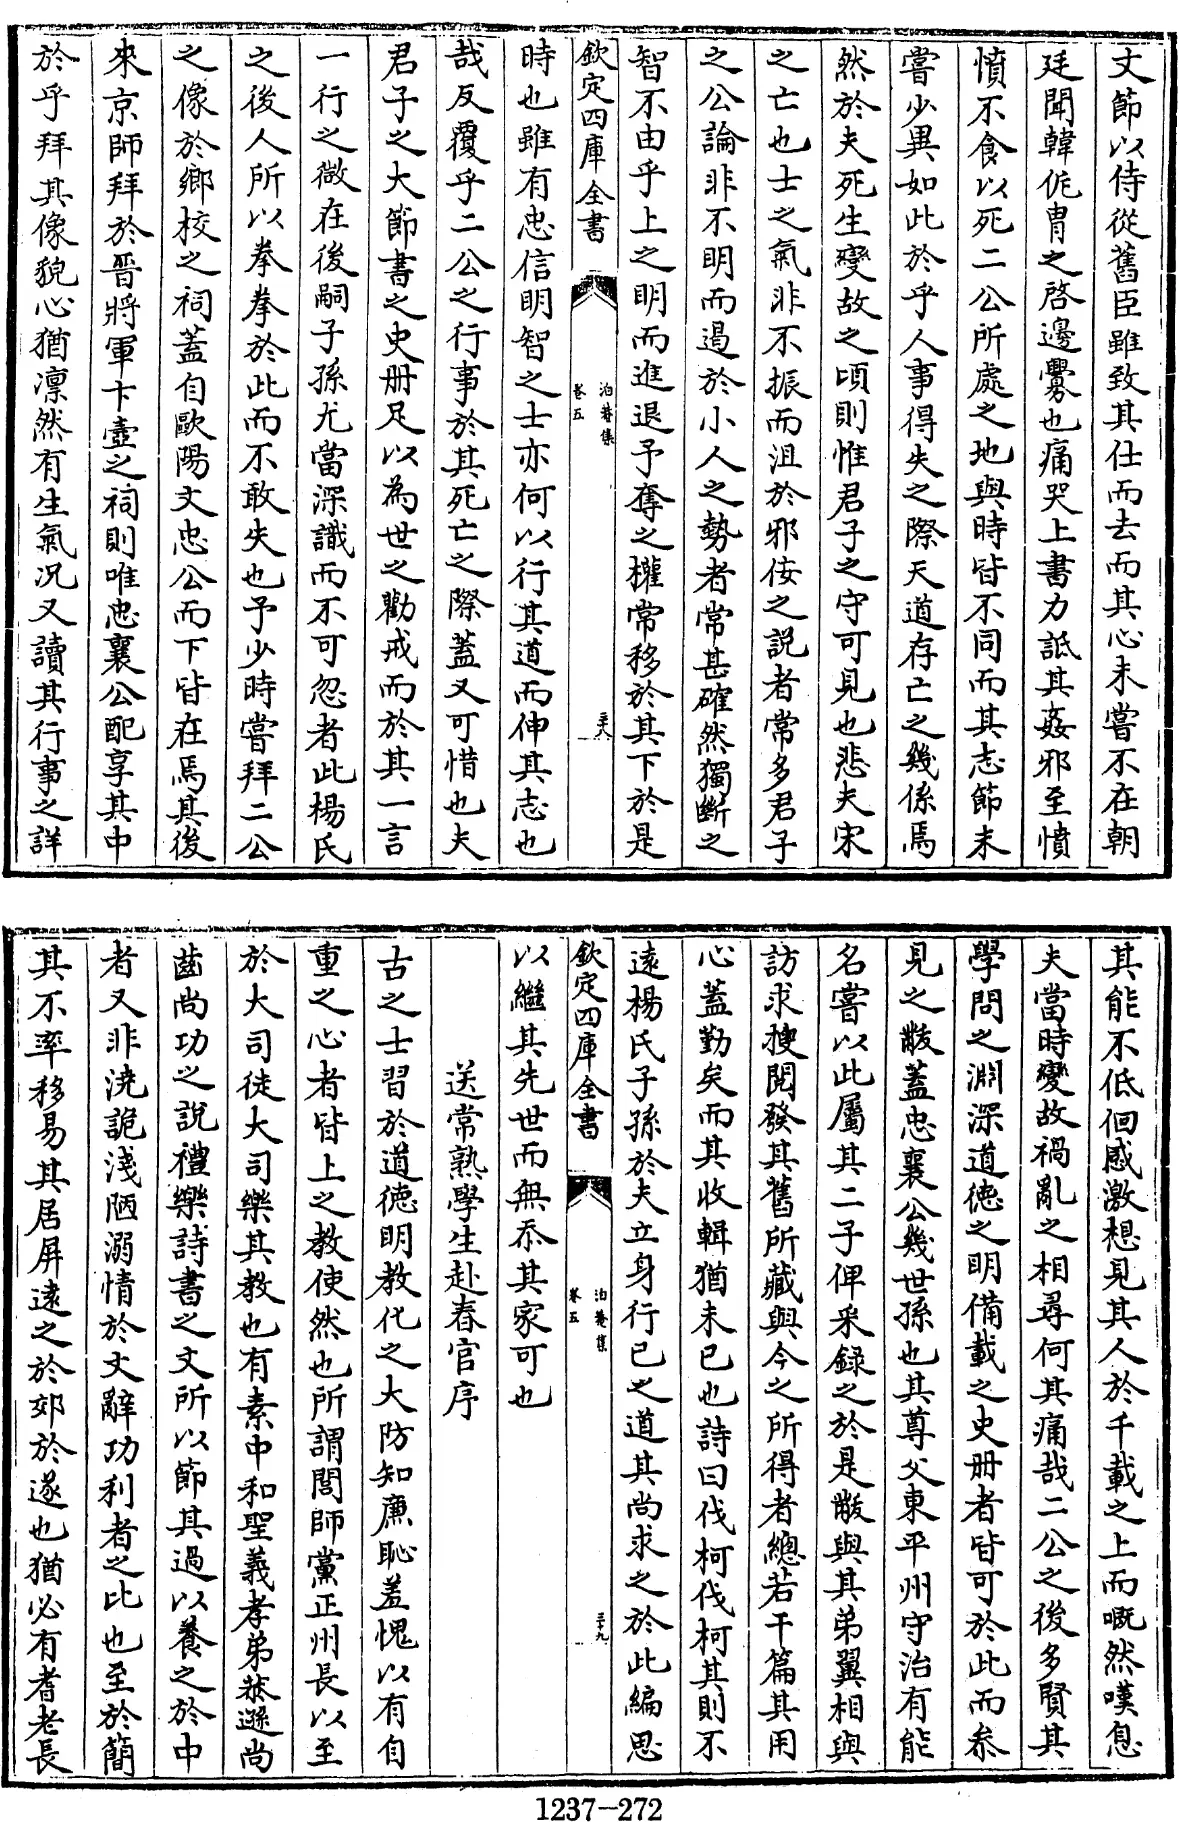 文節以侍從舊臣雖致其仕而去而其心未嘗不在朝
廷聞韓侂胄之啓邊釁也痛哭上書力詆其姦邪至憤
憤不食以死二公所處之地與時皆不同而其志節未
嘗少異如此於乎人事得失之際天道存亡之幾係焉
然於夫死生變故之頃則惟君子之守可見也悲夫宋
之亡也士之氣非不振而沮於邪佞之説者常多君子
之公論非不明而遏於小人之勢者常甚確然獨斷之
智不由乎上之明而進退予奪之權常移於其下於是
欽定四庫全書
泊菴集
卷五
三十八
時也雖有忠信明智之士亦何以行其道而伸其志也
哉反覆乎二公之行事於其死亡之際蓋又可惜也夫
君子之大節書之史册足以為世之勸戒而於其一言
一行之微在後嗣子孫尤當深識而不可忽者此楊氏
之後人所以拳拳於此而不敢失也予少時嘗拜二公
之像於鄉校之祠蓋自歐陽文忠公而下皆在焉其後
來京師拜於晉將軍卞壼之祠則唯忠襄公配享其中
於乎拜其像貌心猶凛然有生氣况又讀其行事之詳
其能不低佪感激想見其人於千載之上而嘅然嘆息
夫當時變故禍亂之相尋何其痛哉二公之後多賢其
學問之淵深道徳之明備載之史册者皆可於此而叅
見之黻蓋忠襄公幾世孫也其尊父東平州守治有能
名嘗以此屬其二子俾采錄之於是黻與其弟翼相與
訪求搜閱發其舊所藏與今之所得者總若干篇其用
心蓋勤矣而其收輯猶未已也詩曰伐柯伐柯其則不
遠楊氏子孫於夫立身行已之道其尚求之於此編思
欽定四庫全書
泊菴集
卷五
三十九
以繼其先世而無忝其家可也
送常熟學生赴春官序
古之士習於道徳明教化之大防知廉恥羞愧以有自
重之心者皆上之教使然也所謂閭師黨正州長以至
於大司徒大司樂其教也有素中和聖義孝弟恭遜尚
齒尚功之說禮樂詩書之文所以節其過以養之於中
者又非澆詭淺陋溺情於文辭功利者之比也至於簡
其不率移易其居屏遠之於郊於遂也猶必有耆老長
1237-272